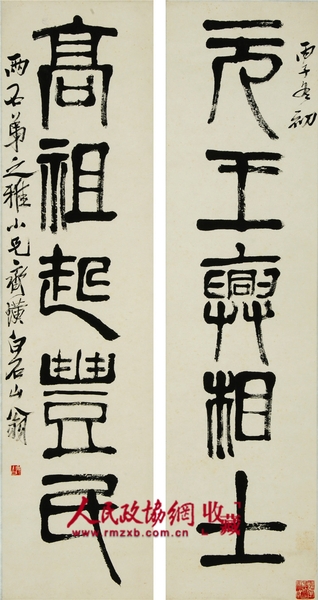 丙子冬初
元王興相土
高祖起豐民
兩石弟之雅小兄齊璜白石山翁
人民政協網 收藏
www.rmzxb.com.cn